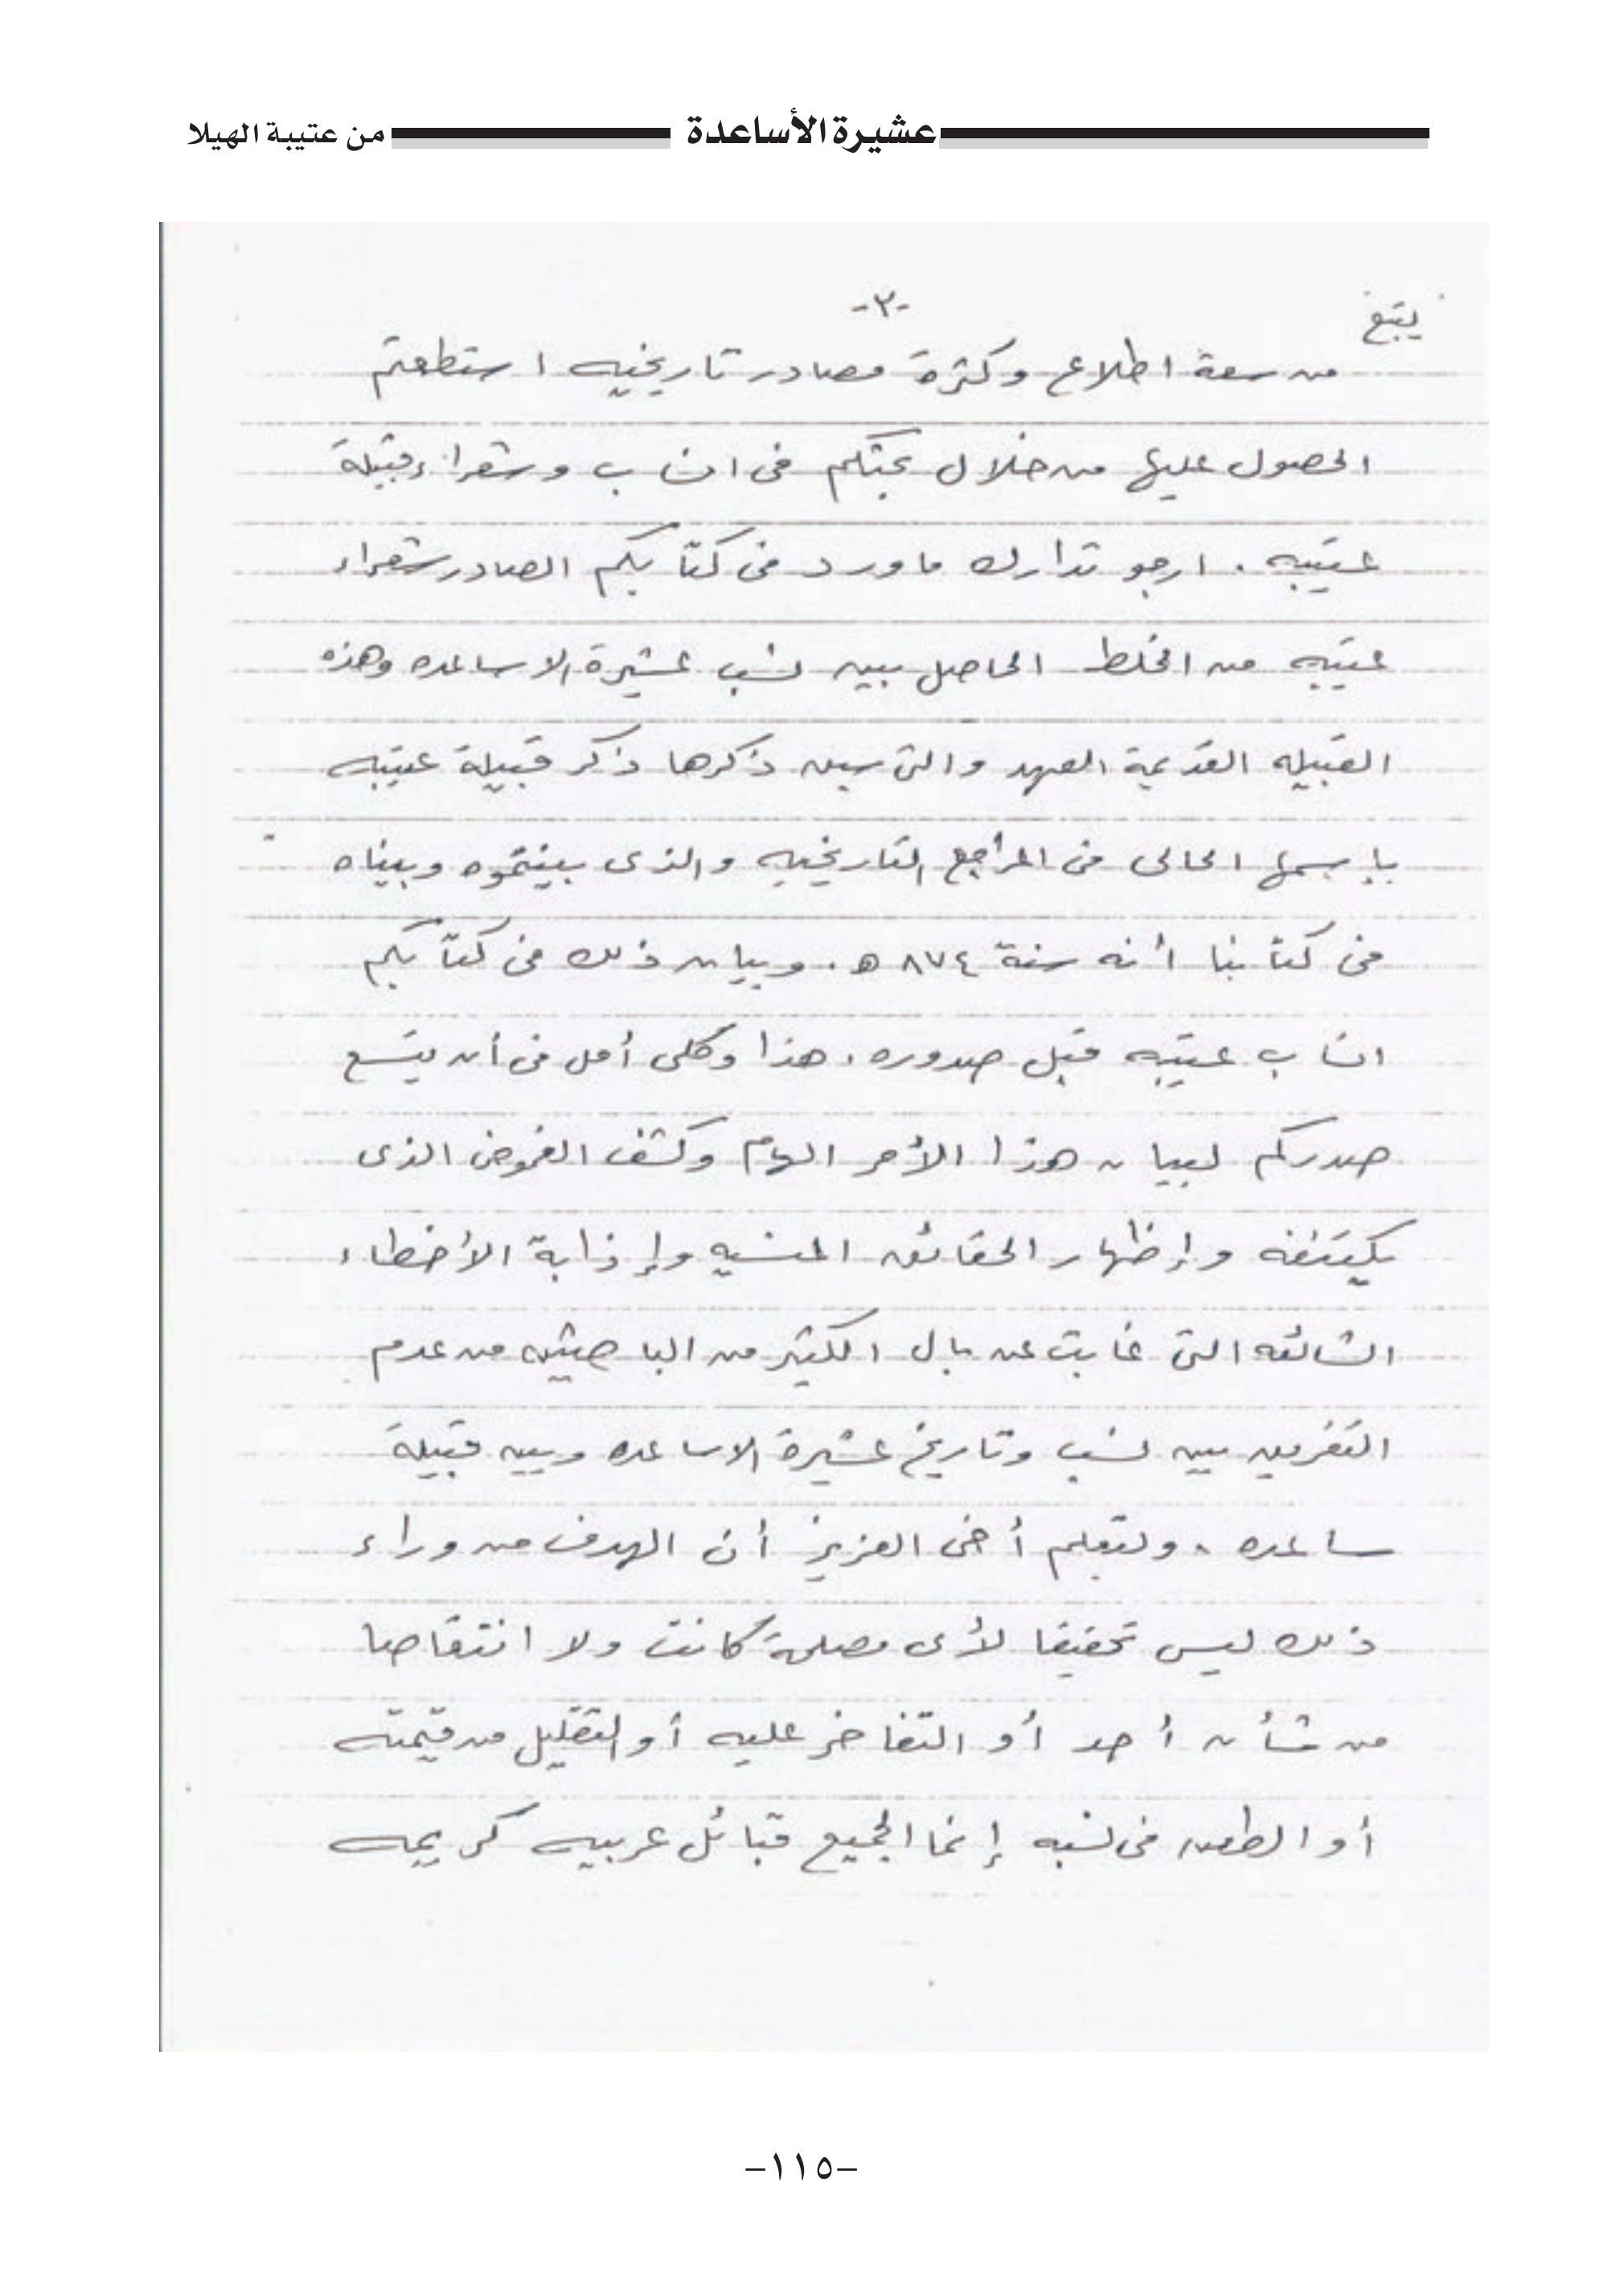 عشيرة الأساعدة من عتيبة الهيلا
يتبع
-٣-
من سعة اطلاع وكثرة مصادر تاريخيه استطعتم
الحصول عليها من خلال بحثكم فى انساب وشعراء قبيلة
عتيبه . ارجو تدارك ما ورد فى كتابكم الصادر شعراء
عتيبه من الخلط الحاصل بين نسب عشيرة الاساعده وهذه
القبيله القديمة العهد والتى سبق ذكرها ذكر قبيلة عتيبه
بإسمها الحالى فى المراجع التاريخيه والذى بينتموه وبيناه
فى كتابنا أنه سنة ٨٧٤ هـ . وبيان ذلك فى كتابكم
انساب عتيبه قبل صدوره . هذا وكلى أمل فى أن يتسع
صدركم لبيان هذا الأمر الهام وكشف الغموض الذى
يكتنفه وإظهار الحقائق المنسيه وإذابة الأخطاء
الشائعه التى غابت عن بال الكثير من الباحثين من عدم
التفريق بين نسب وتاريخ عشيرة الاساعده وبين قبيلة
ساعده . ولتعلم أخى العزيز أن الهدف من وراء
ذلك ليس تحقيقا لأى مصلحة كانت ولا انتقاصا
من شأن أحد أو التفاخر عليه أو التقليل من قيمته
أو الطعن فى نسبه إنما الجميع قبائل عربيه كريمه
-١١٥-